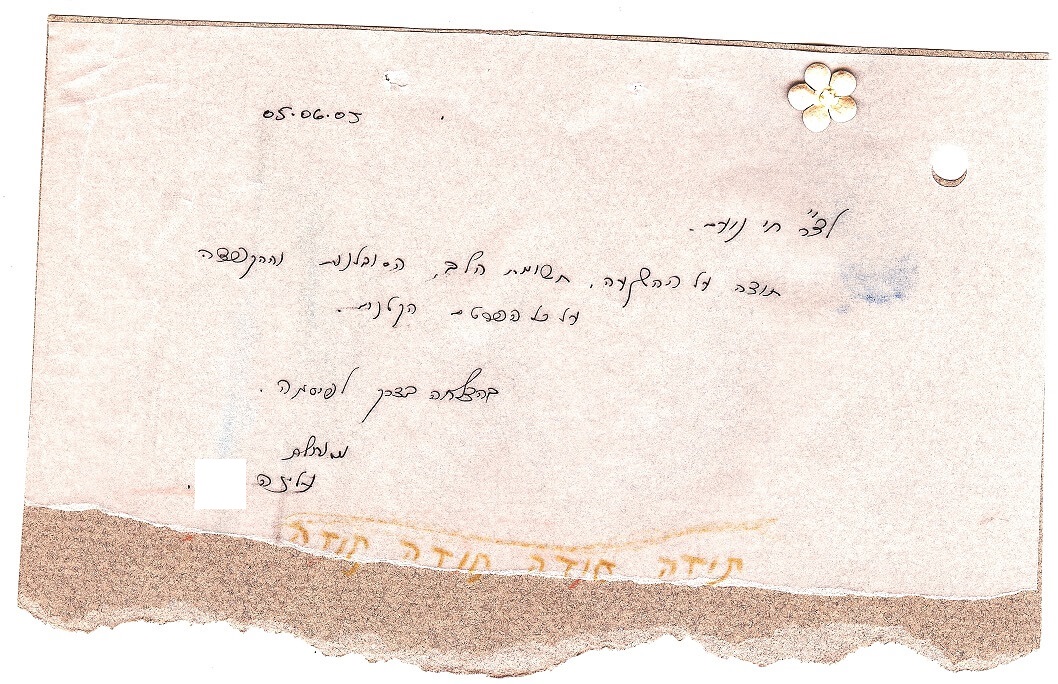 05.06.03
לד"ר חי נוימן.
תודה על ההשקעה, תשומת הלב, הסובלנות וההקפדה
על כל הפרטים הקטנים.
בהצלחה בדרך
עליזה
תודה תודה תודה תודה